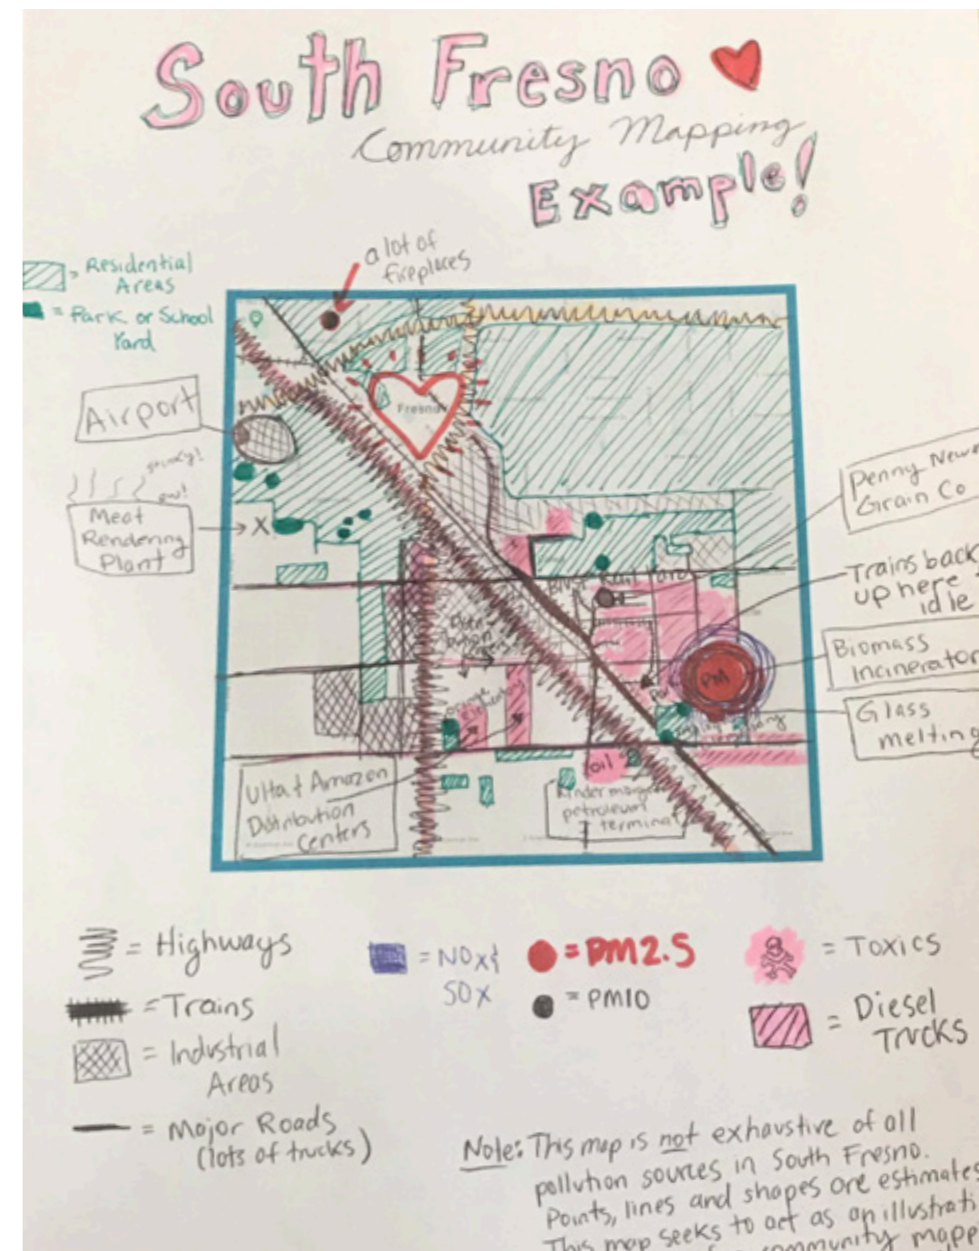 South Fresno
Community Mapping
Example!
a lot of
fireplaces
= Residential
Areas
= Park or School
Yard
Airport
stinky!
ow!
Meat
Rendering
Plant
X
Fresno
Penny Newm
Grain Co
Trains back
up here &
idle
Biomass
Incinerator
PM
Glass
melting
oil
Ulta & Amazon
Distribution
Centers
Kinder morgan
petroleum
terminal
= Highways
= Trains
= Industrial
Areas
= Major Roads
(lots of trucks)
= NOx &
SOx
= PM2.5
= PM10
= Toxics
= Diesel
Trucks
Note: This map is not exhaustive of all
pollution sources in South Fresno.
Points, lines and shapes are estimates
This map seeks to act as an illustrati
community mapp